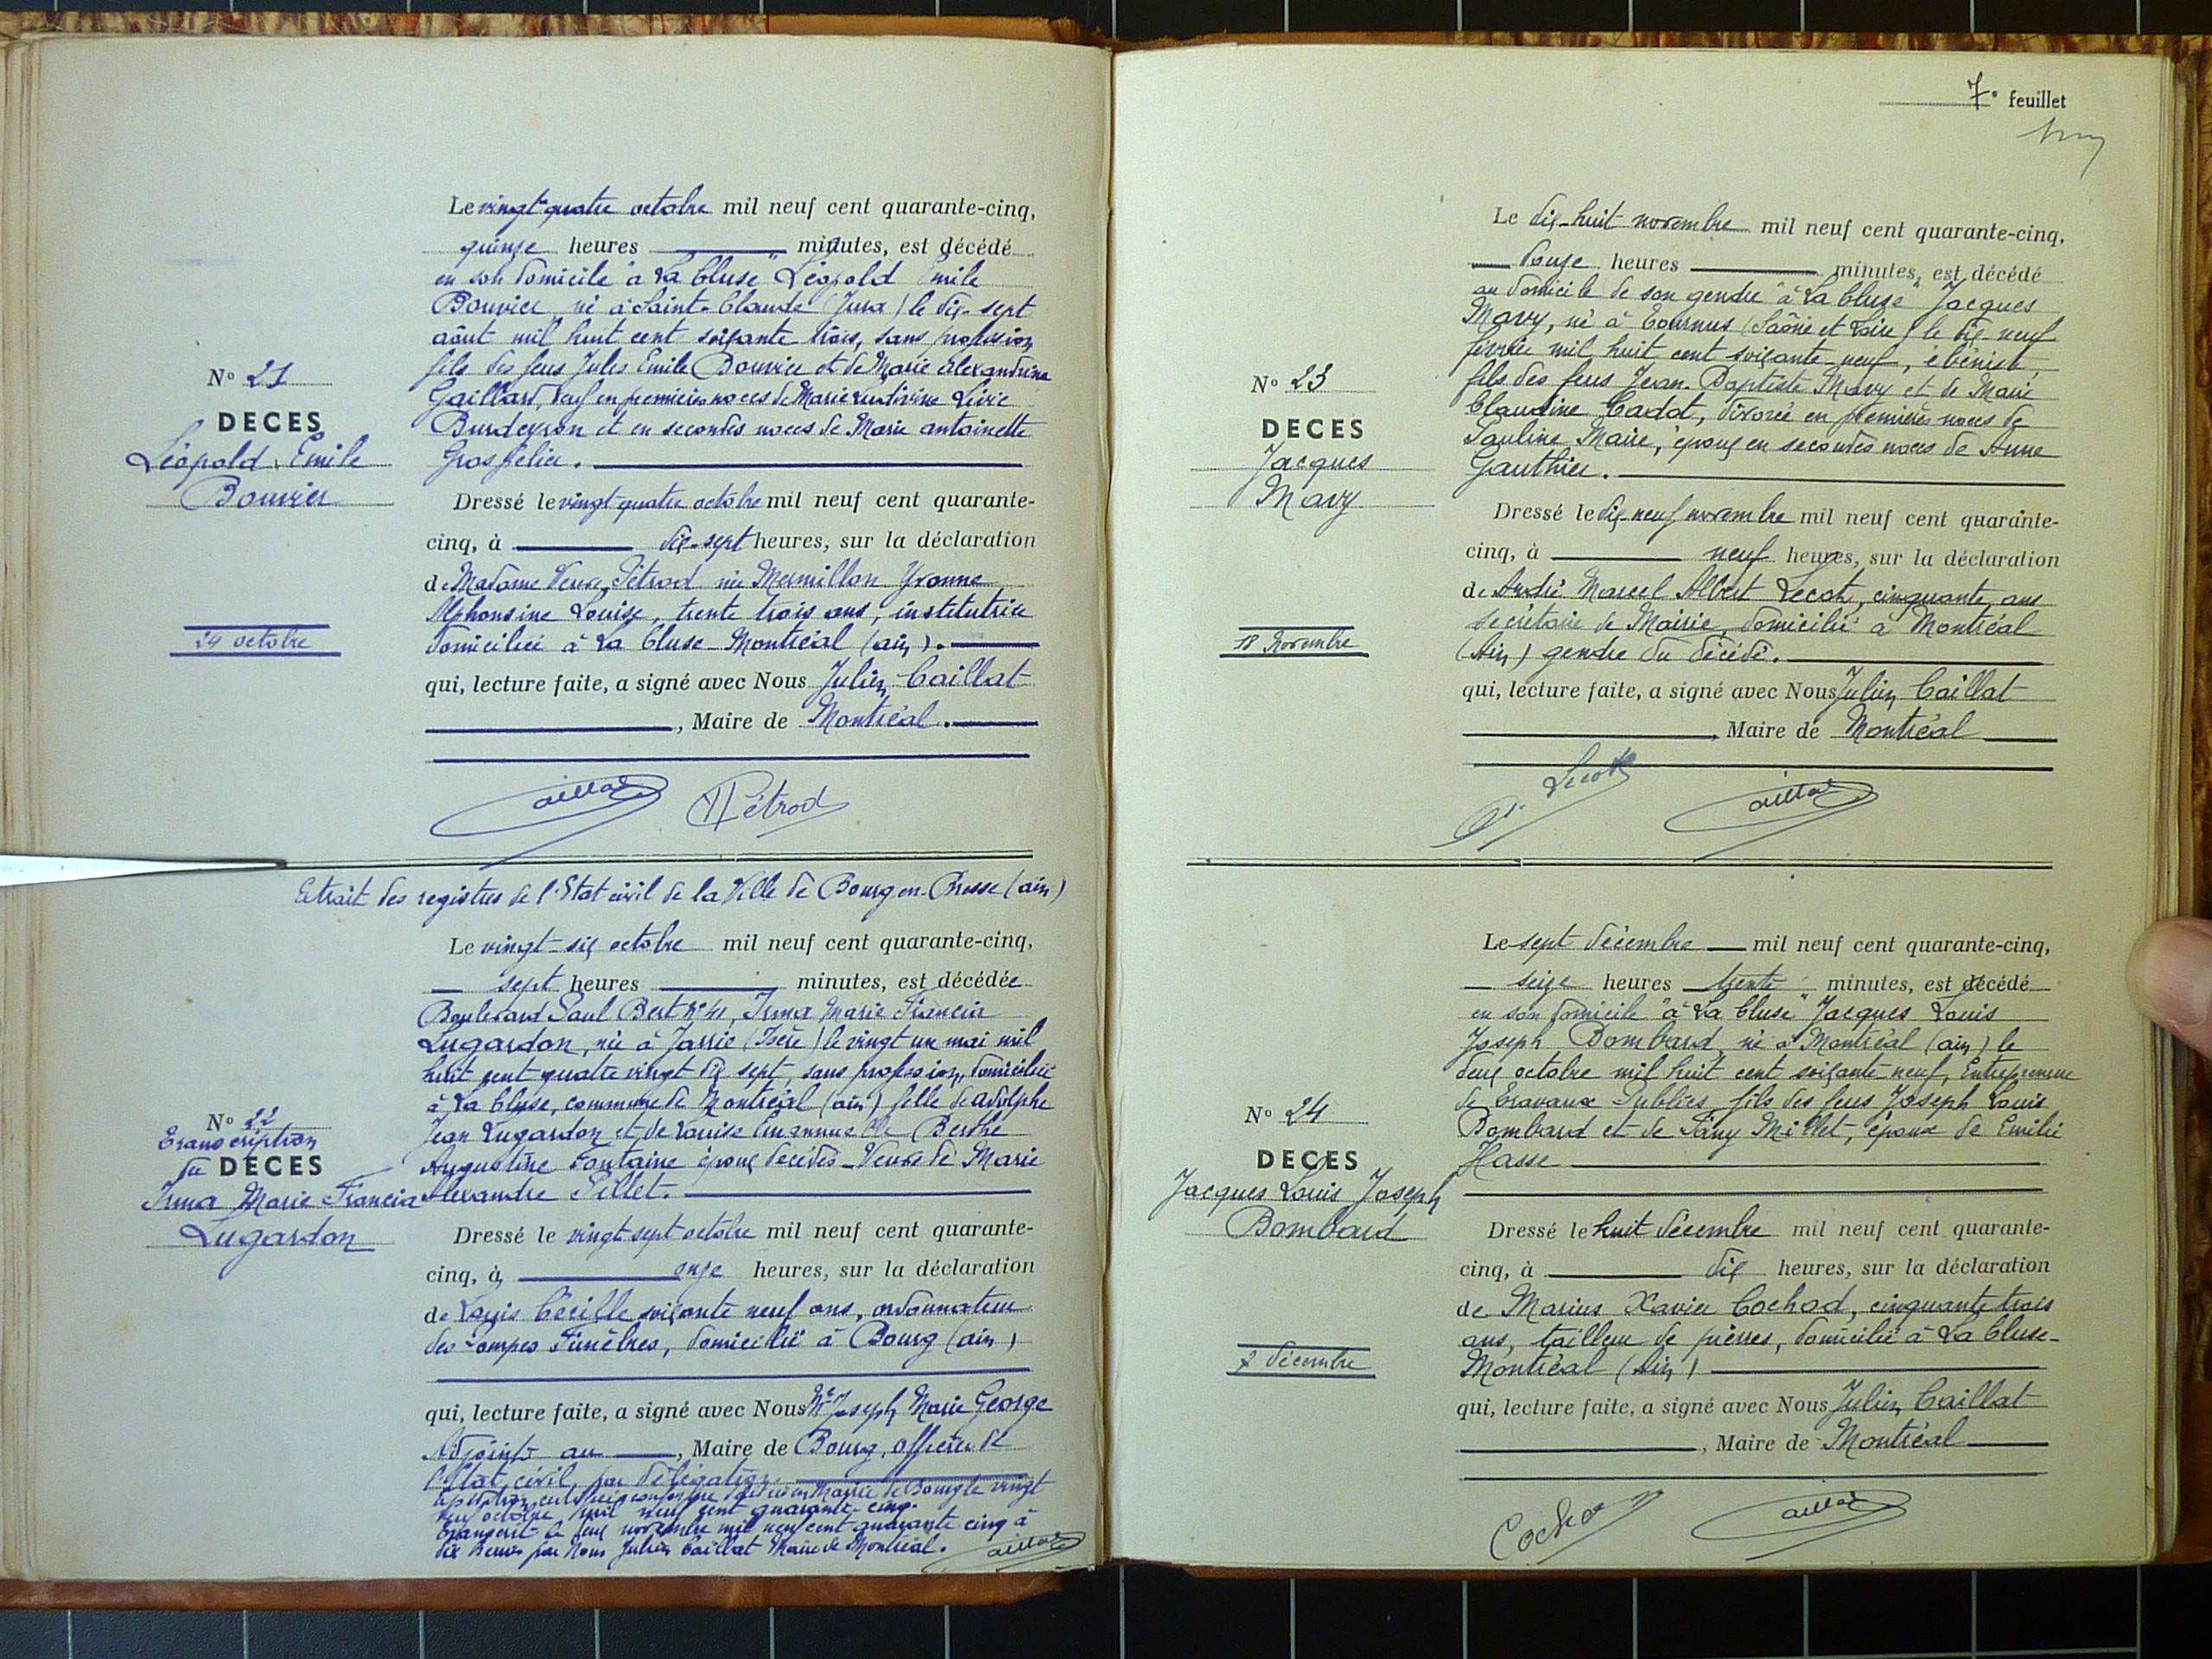 Le vingt quatre octobre mil neuf cent quarante-cinq,
quinze heures minutes, est décédé
en son domicile "à La Cluse" Léopold Emile
Bouvier, né à Saint-Claude (Jura) le dix-sept
août mil huit cent soixante trois, sans profession
fils des feus Jules Emile Bouvier et de Marie Alexandrine
Gaillard, veuf en premières noces de Marie Livie
Burdeyron et en secondes noces de Marie Antoinette
Grosfélier.
N° 21
DECES
Léopold Emile
Bouvier
24 octobre
Dressé le vingt-quatre octobre mil neuf cent quarante-
cinq, à dix-sept heures, sur la déclaration
de Madame Veuve Pétrod née Mermillon Yvonne
Alphonsine Louise, trente trois ans, institutrice
domiciliée à La Cluse-Montréal (Ain).
qui, lecture faite, a signé avec Nous Julien Caillat
, Maire de Montréal.
Caillat Pétrod
Extrait des registres de l'Etat civil de la Ville de Bourg en-Bresse (Ain)
Le vingt-six octobre mil neuf cent quarante-cinq,
sept heures minutes, est décédée
Boulevard Paul Bert N° 41, Irma Marie Francia
Lugardon, née à Jarrie (Isère) le vingt un mai mil
huit cent quatre vingt dix sept, sans profession, domiciliée
à La Cluse, commune de Montréal (Ain) fille de Adolphe
Jean Lugardon et de Louise Emmanuelle Berthe
Augustine Fontaine époux décédés - Veuve de Marie
Alexandre Pillet.
N° 22
Transcription
du DECES
Irma Marie Francia
Lugardon
Dressé le vingt sept octobre mil neuf cent quarante-
cinq, à onze heures, sur la déclaration
de Louis Cécille soixante neuf ans, ordonnateur
des Pompes Funèbres, domicilié à Bourg (Ain)
qui, lecture faite, a signé avec Nous Joseph Marie George
Adjoint au , Maire de Bourg, officier de
l'Etat civil par délégation.
conforme délivrée en Mairie de Bourg le vingt
neuf octobre mil neuf cent quarante-cinq.
Transcrit le deux novembre mil neuf cent quarante cinq à
dix heures par Nous Julien Caillat Maire de Montréal.
Caillat
7e feuillet
Le dix-huit novembre mil neuf cent quarante-cinq,
douze heures minutes, est décédé
au domicile de son gendre "à La Cluse" Jacques
Mavy, né à Tournus (Saône et Loire) le dix-neuf
février mil huit cent soixante-neuf, ébéniste,
fils des feus Jean-Baptiste Mavy et de Marie
Claudine Cadot, divorcé en premières noces de
Pauline Maire, époux en secondes noces de Anne
Gauthier.
N° 23
DECES
Jacques
Mavy
18 Novembre
Dressé le dix-neuf novembre mil neuf cent quarante-
cinq, à neuf heures, sur la déclaration
de André Marcel Albert Lecote, cinquante ans
secrétaire de Mairie, domicilié à Montréal
(Ain) gendre du décédé.
qui, lecture faite, a signé avec Nous Julien Caillat
, Maire de Montréal
Caillat
Le sept décembre mil neuf cent quarante-cinq,
seize heures trente minutes, est décédé
en son domicile "à La Cluse" Jacques Louis
Joseph Bombard, né à Montréal (Ain) le
deux octobre mil huit cent soixante-neuf, Entrepreneur
de Travaux Publics, fils des feus Joseph Louis
Bombard et de Fany Millet, époux de Emilie
Hasse
N° 24
DECES
Jacques Louis Joseph
Bombard
7 décembre
Dressé le huit décembre mil neuf cent quarante-
cinq, à dix heures, sur la déclaration
de Marius Xavier Cochod, cinquante trois
ans, tailleur de pierres, domicilié à La Cluse-
Montréal (Ain)
qui, lecture faite, a signé avec Nous Julien Caillat
, Maire de Montréal
Cochod Caillat